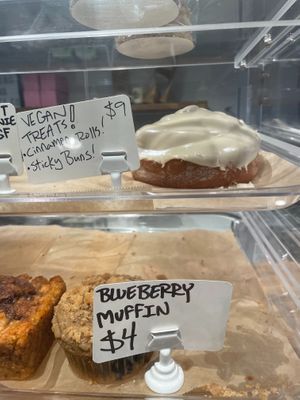 VEGAN $9
TREATS!
• Cinnamon Rolls!
• Sticky Buns!
BLUEBERRY
MUFFIN
$4